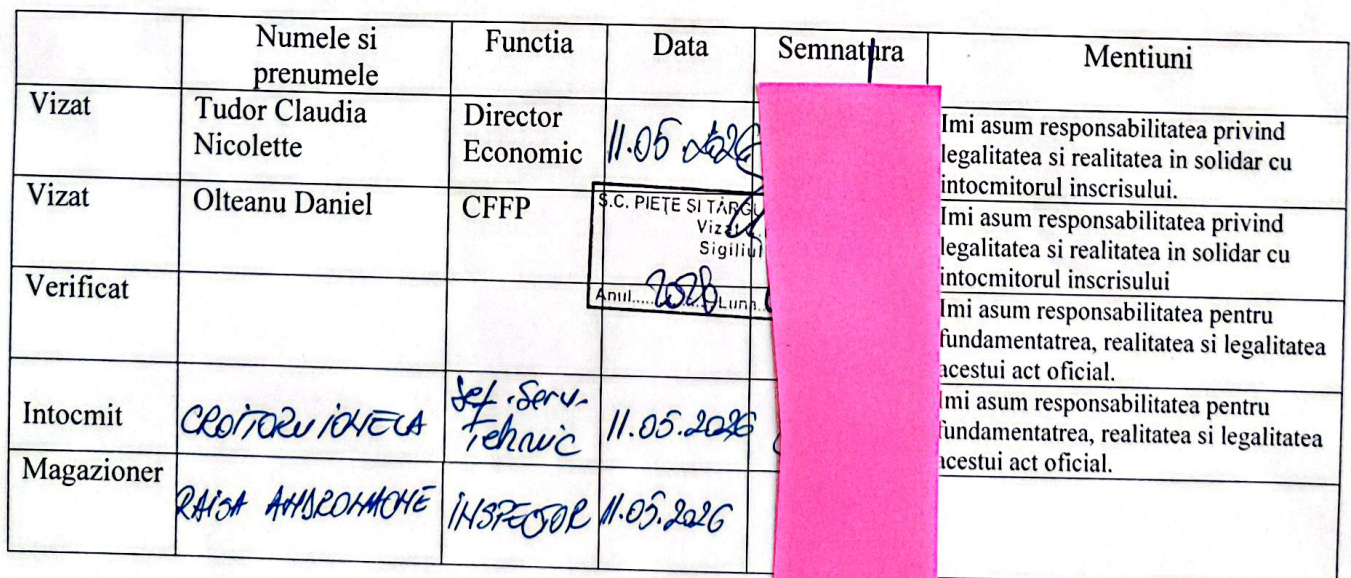 Numele si prenumele Functia Data Semnatura Mentiuni
Vizat Tudor Claudia Nicolette Director Economic 11.05.2026 Imi asum responsabilitatea privind
legalitatea si realitatea in solidar cu
intocmitorul inscrisului.
Vizat Olteanu Daniel CFFP Imi asum responsabilitatea privind
legalitatea si realitatea in solidar cu
intocmitorul inscrisului
S.C. PIEȚE ȘI TÂRGU
Vizat
Sigiliul
Anul..... Luna..
Verificat Imi asum responsabilitatea pentru
fundamentatrea, realitatea si legalitatea
acestui act oficial.
Intocmit CROITORU IONELA Sef Serv. Tehnic 11.05.2026 Imi asum responsabilitatea pentru
fundamentatrea, realitatea si legalitatea
acestui act oficial.
Magazioner RAISA ANDROMACHE INSPECTOR 11.05.2026